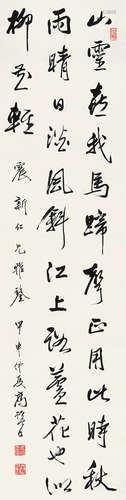 山靈喜我馬蹄聲正用此時秋
雨晴日淡風斜江上路蘆花也似
柳花輕
震新仁兄雅鑒 甲申仲夏